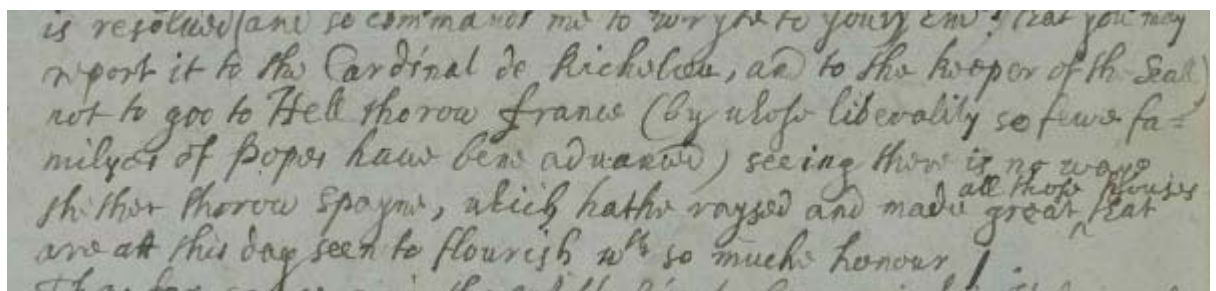 is resolued (and so commands me to wryte to your Em: that you may
report it to the Cardinal de Richelieu, and to the keeper of the Seall)
not to goo to Hell thorow france (by whose liberality so fewe fa=
milyes of Popes haue bene aduanced) seeing there is no waye
thether thorow Spayne, which hathe raysed and made great all those houses that
are att this day seen to flourish wth so muche honour /